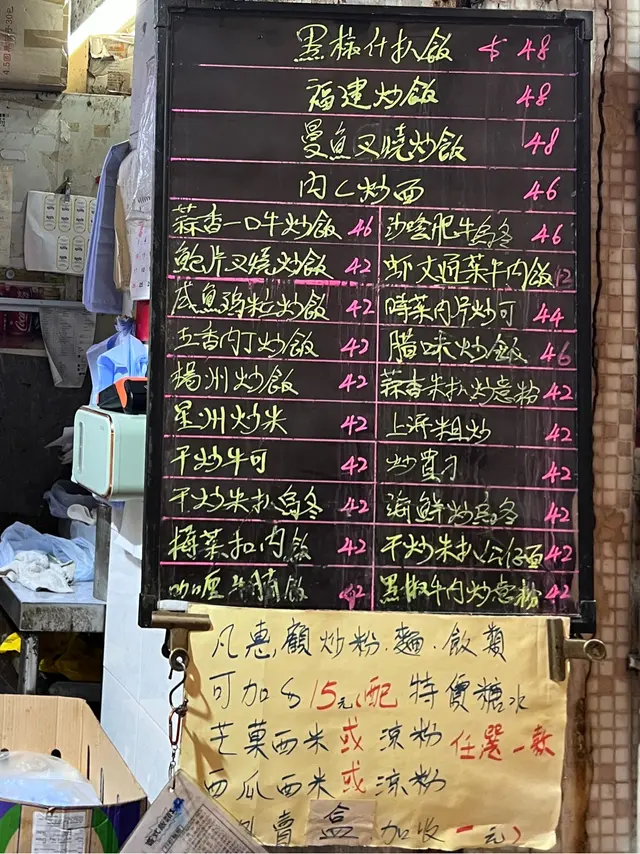 黑椒什扒飯 $ 48
福建炒飯 48
曼魚叉燒炒飯 48
肉乙炒面 46
蒜香一口牛炒飯 46 沙嗲肥牛烏冬 46
鮑片叉燒炒飯 42 虾
牛肉飯
咸魚鸡粒炒飯 42 時菜肉片炒可 44
五香肉丁炒飯 42 腊味炒飯 46
楊洲炒飯 42 蒜香朱扒炒意粉 42
星洲炒米 42 上海粗炒 42
干炒牛可 42 炒貴刁 42
干炒朱扒烏冬 42 海鮮炒烏冬 42
梅菜扣肉飯 42 干炒朱扒公仔面 42
咖喱牛腩飯 42 黑椒牛肉炒意粉 42
凡惠顧炒粉.麵.飯類
可加$15元(配 特價糖水
芒菓西米或涼粉 任選一款
西瓜西米或涼粉
外賣 盒 加收一元)